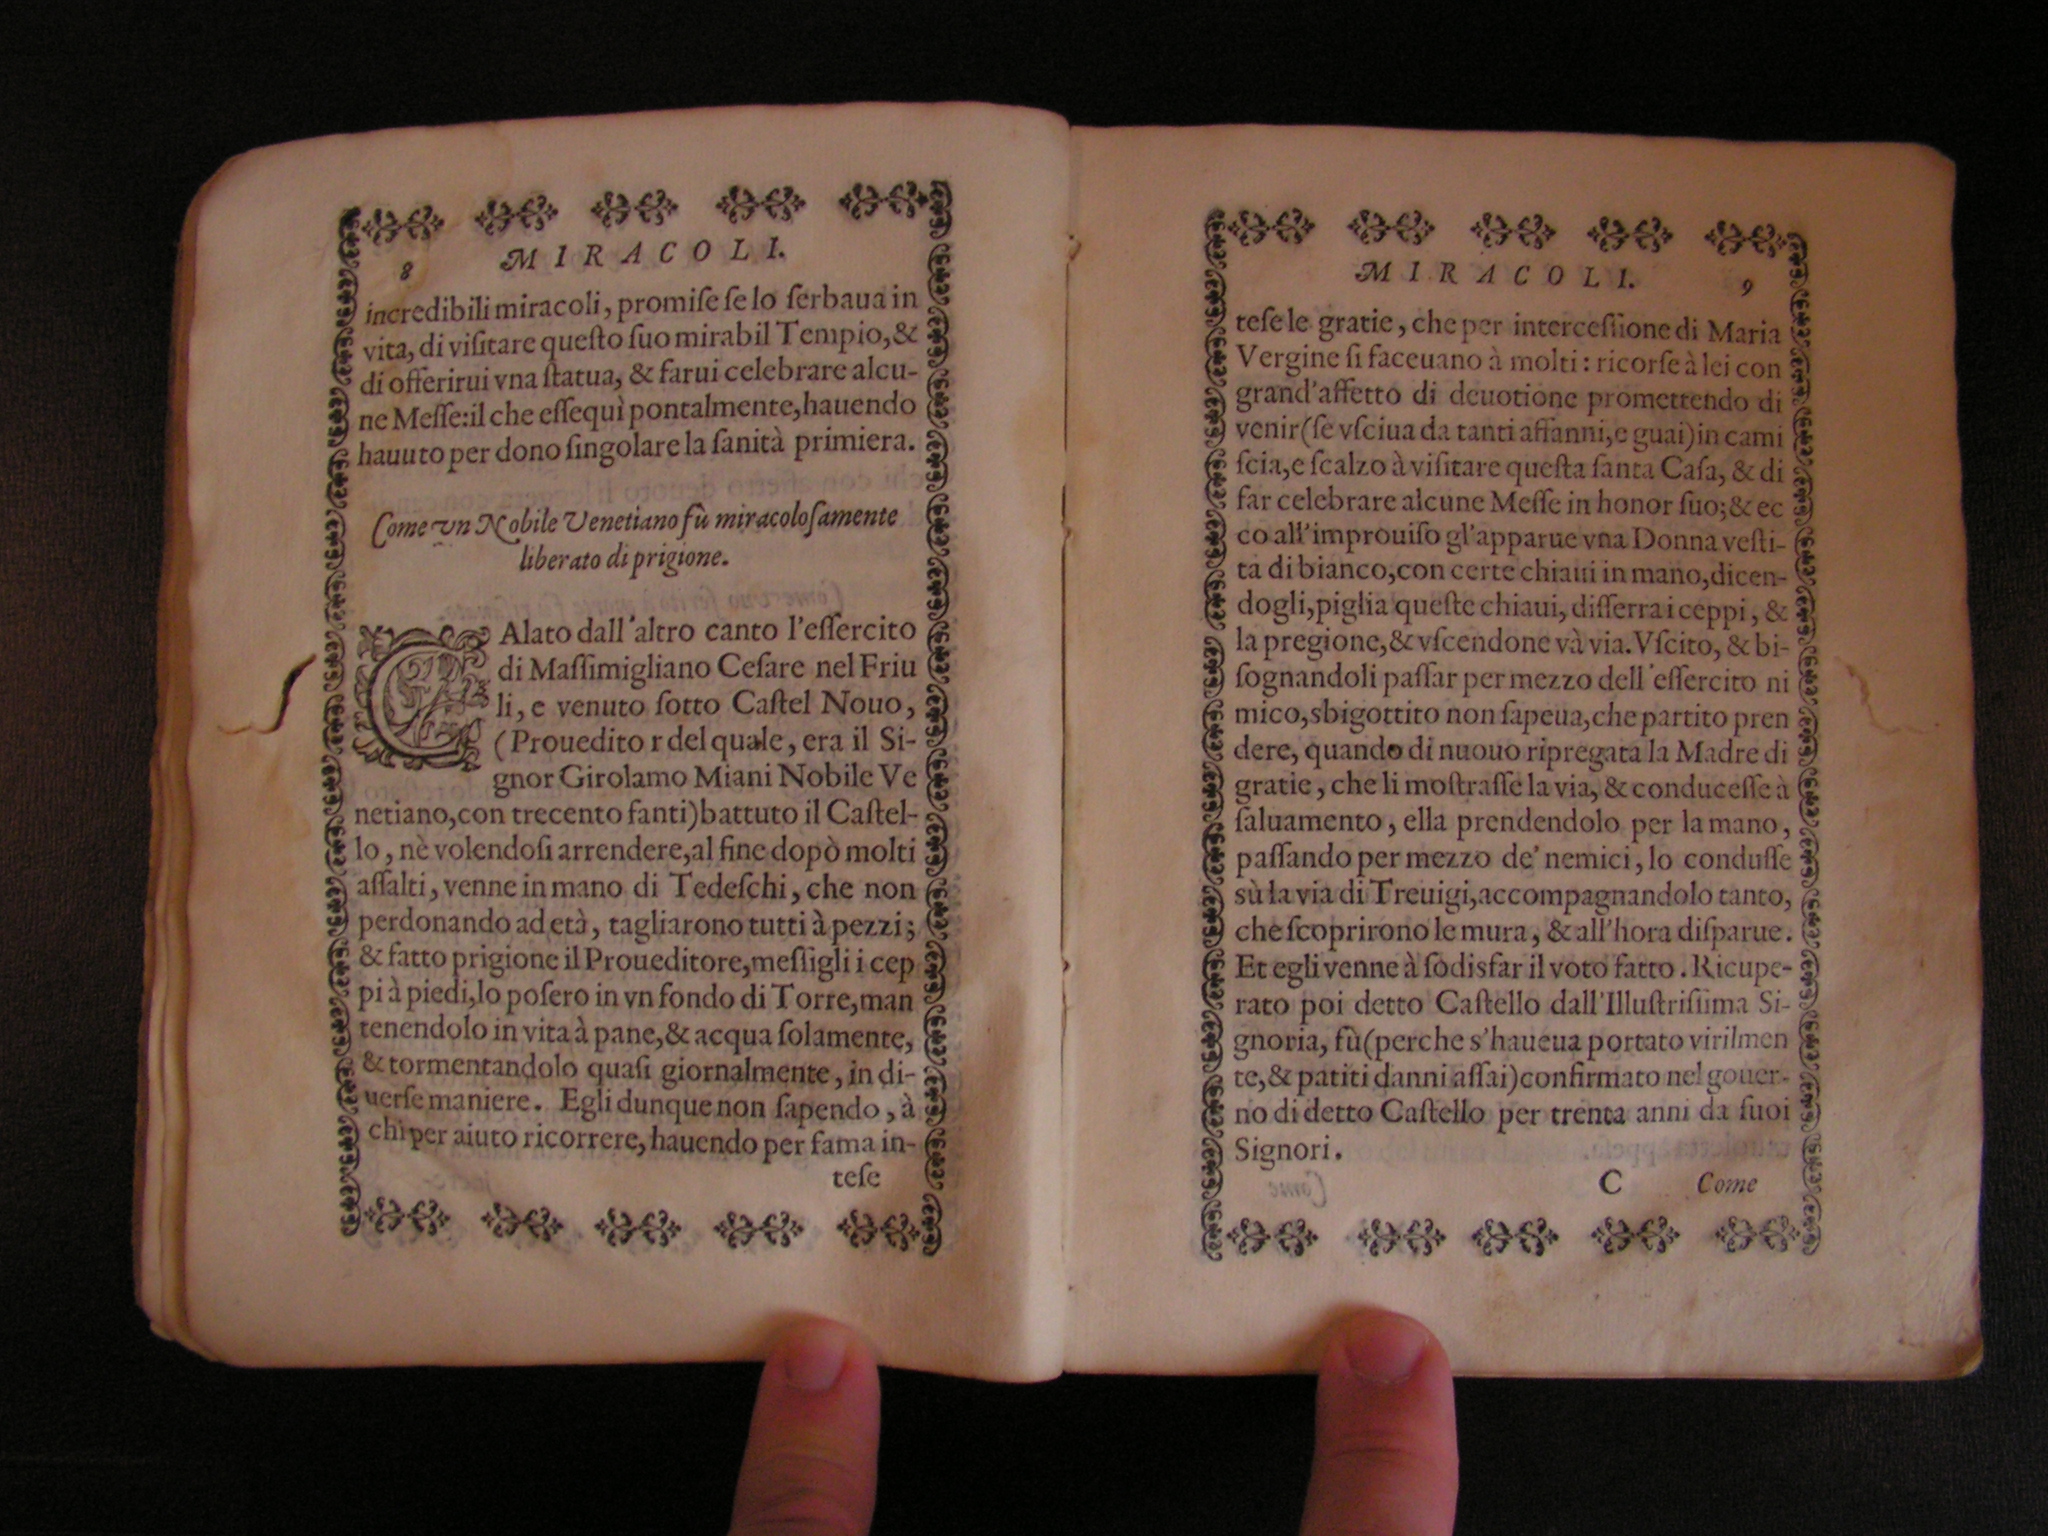 8 MIRACOLI.
incredibili miracoli, promiſe ſe lo ſerbaua in
vita, di viſitare queſto ſuo mirabil Tempio, &
di offerirui vna ſtatua, & farui celebrare alcu-
ne Meſſe: il che eſſequì pontalmente, hauendo
hauuto per dono ſingolare la ſanità primiera.
Come vn Nobile Venetiano fù miracoloſamente
liberato di prigione.
CAlato dall'altro canto l'eſſercito
di Maſſimigliano Ceſare nel Friu
li, e venuto ſotto Caſtel Nouo,
(Prouedito r del quale, era il Si-
gnor Girolamo Miani Nobile Ve
netiano, con trecento fanti) battuto il Caſtel-
lo, nè volendoſi arrendere, al fine dopò molti
aſſalti, venne in mano di Tedeſchi, che non
perdonando ad età, tagliarono tutti à pezzi;
& fatto prigione il Proueditore, meſſigli i cep
pi à piedi, lo poſero in vn fondo di Torre, man
tenendolo in vita à pane, & acqua ſolamente,
& tormentandolo quaſi giornalmente, in di-
uerſe maniere. Egli dunque non ſapendo, à
chi per aiuto ricorrere, hauendo per fama in-
teſe
MIRACOLI. 9
teſe le gratie, che per interceſſione di Maria
Vergine ſi faceuano à molti: ricorſe à lei con
grand'affetto di deuotione promettendo di
venir (ſe vſciua da tanti affanni, e guai) in cami
ſcia, e ſcalzo à viſitare queſta ſanta Caſa, & di
far celebrare alcune Meſſe in honor ſuo; & ec
co all'improuiſo gl'apparue vna Donna veſti-
ta di bianco, con certe chiaui in mano, dicen-
dogli, piglia queſte chiaui, diſſerra i ceppi, &
la pregione, & vſcendone và via. Vſcito, & bi-
ſognandoli paſſar per mezzo dell'eſſercito ni
mico, sbigottito non ſapeua, che partito pren
dere, quando di nuouo ripregata la Madre di
gratie, che li moſtraſſe la via, & conduceſſe à
ſaluamento, ella prendendolo per la mano,
paſſando per mezzo de' nemici, lo conduſſe
sù la via di Treuigi, accompagnandolo tanto,
che ſcoprirono le mura, & all'hora diſparue.
Et egli venne à ſodisfar il voto fatto. Ricupe-
rato poi detto Caſtello dall'Illuſtriſſima Si-
gnoria, fù (perche s'haueua portato virilmen
te, & patiti danni aſſai) confirmato nel gouer-
no di detto Caſtello per trenta anni da ſuoi
Signori.
C Come